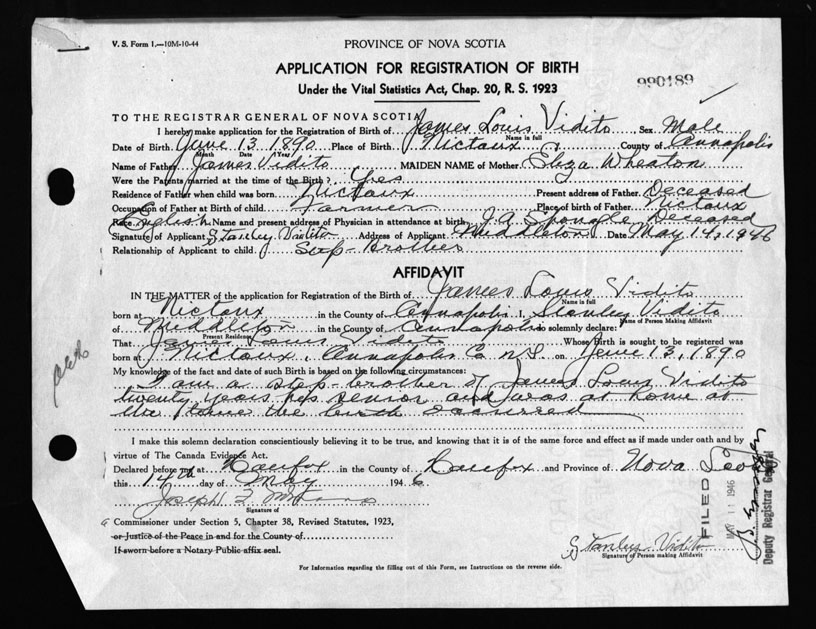 V. S. Form 1.—10M-10-44
PROVINCE OF NOVA SCOTIA
APPLICATION FOR REGISTRATION OF BIRTH
Under the Vital Statistics Act, Chap. 20, R. S. 1923
990189
TO THE REGISTRAR GENERAL OF NOVA SCOTIA
I hereby make application for the Registration of Birth of James Louis Vidito Sex Male
Name in full
Date of Birth June 13 1890 Place of Birth Nictaux County of Annapolis
Month Date Year
Name of Father James Vidito MAIDEN NAME of Mother Eliza Wheaton
Were the Parents married at the time of the Birth? Yes
Residence of Father when child was born Nictaux Present address of Father Deceased
Occupation of Father at Birth of child Farmer Place of birth of Father Nictaux
Race English Name and present address of Physician in attendance at birth J. A. Sponagle Deceased
Signature of Applicant Stanley Vidito Address of Applicant Middleton Date May 14, 1946
Relationship of Applicant to child Step-Brother
AFFIDAVIT
IN THE MATTER of the application for Registration of the Birth of James Louis Vidito
Name in full
born at Nictaux in the County of Annapolis I, Stanley Vidito
Name of Person Making Affidavit
of Middleton in the County of Annapolis do solemnly declare:
Present Residence
That James Louis Vidito Whose Birth is sought to be registered was
born at Nictaux, Annapolis Co N.S. on June 13, 1890
My knowledge of the fact and date of such Birth is based on the following circumstances:
I am a step-brother of James Louis Vidito
twenty years his senior and was at home at
the time the birth occurred
I make this solemn declaration conscientiously believing it to be true, and knowing that it is of the same force and effect as if made under oath and by
virtue of The Canada Evidence Act.
Declared before me at Halifax in the County of Halifax and Province of Nova Scotia
this 14th day of May 1946.
Joseph
Signature of
a Commissioner under Section 5, Chapter 38, Revised Statutes, 1923,
or Justice of the Peace in and for the County of
If sworn before a Notary Public affix seal.
Stanley Vidito
Signature of Person making Affidavit
For Information regarding the filling out of this Form, see Instructions on the reverse side.
FILED
MAY 11 1946
Deputy Registrar General